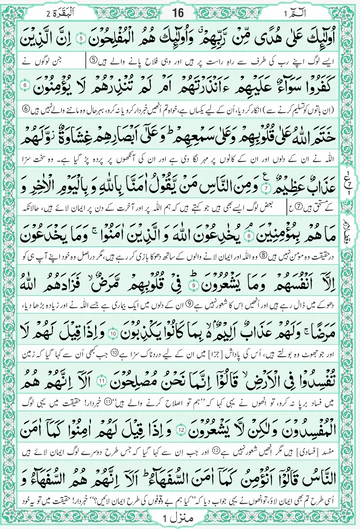 الٓمّٓ 1 16 اَلْبَقَرَة 2
اُولٰٓئِكَ عَلٰى هُدًى مِّنْ رَّبِّهِمْ ۗ وَاُولٰٓئِكَ هُمُ الْمُفْلِحُوْنَ ﴿۵﴾ اِنَّ الَّذِيْنَ
ایسے لوگ اپنے رب کی طرف سے راہ راست پر ہیں اور وہی فلاح پانے والے ہیں جن لوگوں نے
كَفَرُوْا سَوَآءٌ عَلَيْهِمْ ءَاَنْذَرْتَهُمْ اَمْ لَمْ تُنْذِرْهُمْ لَا يُؤْمِنُوْنَ ﴿۶﴾
(ان باتوں کو تسلیم کرنے سے) انکار کر دیا، اُن کے لیے یکساں ہے، خواہ تم انھیں خبردار کرو یا نہ کرو، بہرحال وہ ماننے والے نہیں ہیں
خَتَمَ اللّٰهُ عَلٰى قُلُوْبِهِمْ وَعَلٰى سَمْعِهِمْ ۗ وَعَلٰٓى اَبْصَارِهِمْ غِشَاوَةٌ ۫ وَّلَهُمْ
اللہ نے ان کے دلوں اور ان کے کانوں پر مہر لگا دی ہے اور ان کی آنکھوں پر پردہ پڑ گیا ہے۔ وہ سخت سزا
عَذَابٌ عَظِيْمٌ ﴿۷﴾ وَمِنَ النَّاسِ مَنْ يَّقُوْلُ اٰمَنَّا بِاللّٰهِ وَبِالْيَوْمِ الْاٰخِرِ وَ
کے مستحق ہیں بعض لوگ ایسے بھی ہیں جو کہتے ہیں کہ ہم اللہ پر اور آخرت کے دن پر ایمان لائے ہیں، حالانکہ
مَا هُمْ بِمُؤْمِنِيْنَ ﴿۸﴾ يُخٰدِعُوْنَ اللّٰهَ وَالَّذِيْنَ اٰمَنُوْا ۚ وَمَا يَخْدَعُوْنَ
در حقیقت وہ مومن نہیں ہیں وہ اللہ اور ایمان لانے والوں کے ساتھ دھوکا بازی کر رہے ہیں، مگر دراصل وہ خود اپنے آپ ہی کو
اِلَّآ اَنْفُسَهُمْ وَمَا يَشْعُرُوْنَ ﴿۹﴾ فِيْ قُلُوْبِهِمْ مَّرَضٌ ۙ فَزَادَهُمُ اللّٰهُ
دھوکے میں ڈال رہے ہیں اور انھیں اس کا شعور نہیں ہے ان کے دلوں میں ایک بیماری ہے جسے اللہ نے اور زیادہ بڑھا دیا،
مَرَضًا ۚ وَلَهُمْ عَذَابٌ اَلِيْمٌۢ ۙ۬ بِمَا كَانُوْا يَكْذِبُوْنَ ﴿۱۰﴾ وَاِذَا قِيْلَ لَهُمْ لَا
اور جو جھوٹ وہ بولتے ہیں، اُس کی پاداش میں ان کے لیے دردناک سزا ہے جب کبھی اُن سے کہا گیا کہ زمین
تُفْسِدُوْا فِى الْاَرْضِ ۙ قَالُوْٓا اِنَّمَا نَحْنُ مُصْلِحُوْنَ ﴿۱۱﴾ اَلَآ اِنَّهُمْ هُمُ
میں فساد برپا نہ کرو، تو انھوں نے یہی کہا کہ ”ہم تو اصلاح کرنے والے ہیں“ خبردار! حقیقت میں یہی لوگ
الْمُفْسِدُوْنَ وَلٰكِنْ لَّا يَشْعُرُوْنَ ﴿۱۲﴾ وَاِذَا قِيْلَ لَهُمْ اٰمِنُوْا كَمَآ اٰمَنَ
مفسد ہیں مگر انھیں شعور نہیں ہے اور جب ان سے کہا گیا کہ جس طرح دوسرے لوگ ایمان لائے ہیں
النَّاسُ قَالُوْٓا اَنُؤْمِنُ كَمَآ اٰمَنَ السُّفَهَآءُ ۗ اَلَآ اِنَّهُمْ هُمُ السُّفَهَآءُ وَ
اُسی طرح تم بھی ایمان لاؤ، تو انھوں نے یہی جواب دیا کہ ”کیا ہم بے وقوفوں کی طرح ایمان لائیں؟“ خبردار! حقیقت میں تو یہ خود
منزل 1